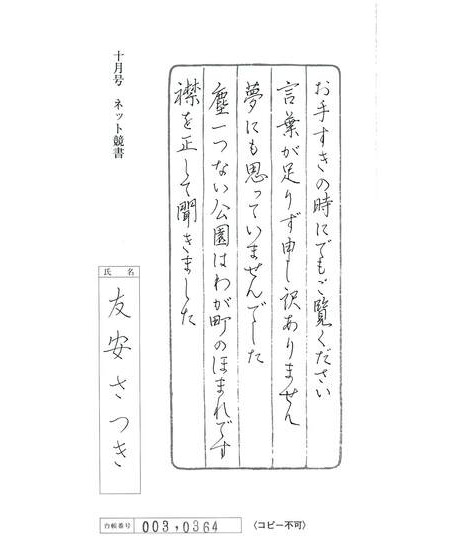 お手すきの時にでもご覧ください
言葉が足りず申し訳ありません
夢にも思っていませんでした
塵一つない公園はわが町のほまれです
襟を正して聞きました
十月号 ネット競書
氏 名
友安さつき
台帳番号 003,0364 〈コピー不可〉